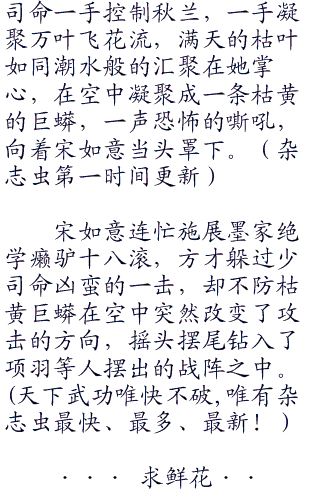 司命一手控制秋兰，一手凝
聚万叶飞花流，满天的枯叶
如同潮水般的汇聚在她掌
心，在空中凝聚成一条枯黄
的巨蟒，一声恐怖的嘶吼，
向着宋如意当头罩下。（杂
志虫第一时间更新）
宋如意连忙施展墨家绝
学癞驴十八滚，方才躲过少
司命凶蛮的一击，却不防枯
黄巨蟒在空中突然改变了攻
击的方向，摇头摆尾钻入了
项羽等人摆出的战阵之中。
(天下武功唯快不破,唯有杂
志虫最快、最多、最新！）
···求鲜花··